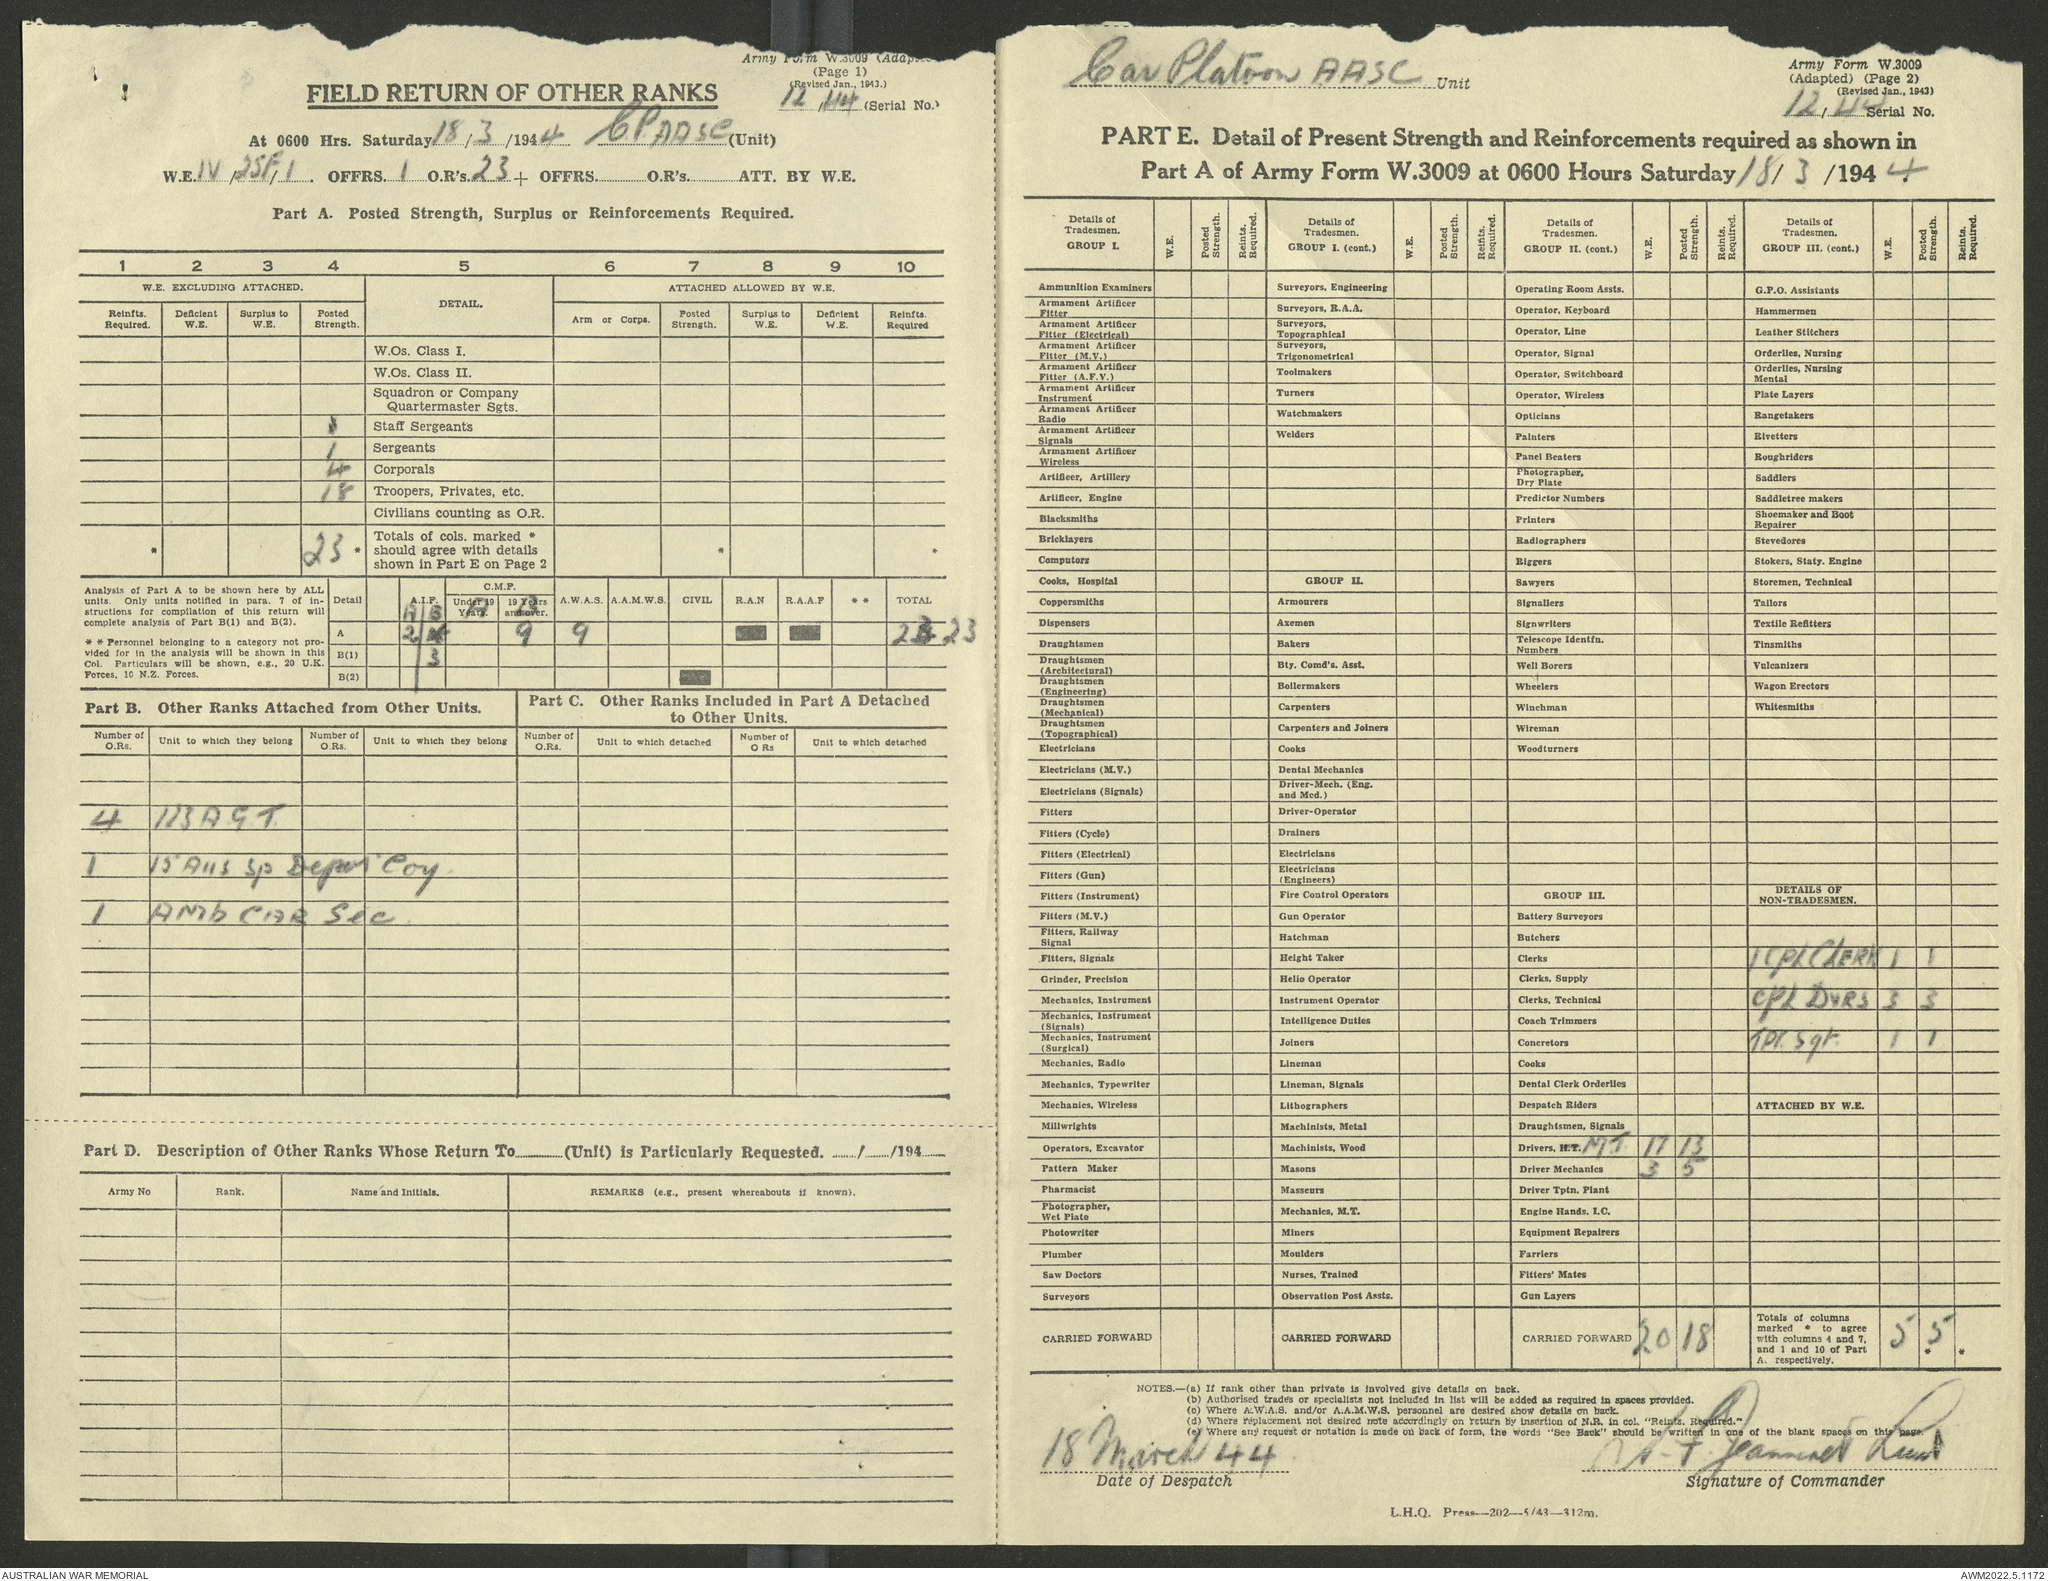 Army Form W.3009 (Adapted)
(Page 1)
(Revised Jan., 1943.)
FIELD RETURN OF OTHER RANKS
12/44 (Serial No.)
At 0600 Hrs. Saturday 18/3/1944 C.P. AASC (Unit)
W.E. IV/25F/1. OFFRS. 1 O.R's. 23 + OFFRS. O.R's. ATT. BY W.E.
Part A. Posted Strength, Surplus or Reinforcements Required.
1 2 3 4 5 6 7 8 9 10
W.E. EXCLUDING ATTACHED. DETAIL. ATTACHED ALLOWED BY W.E.
Reinfts. Required. Deficient W.E. Surplus to W.E. Posted Strength. Arm or Corps. Posted Strength. Surplus to W.E. Deficient W.E. Reinfts. Required
W.Os. Class I.
W.Os. Class II.
Squadron or Company
Quartermaster Sgts.
Staff Sergeants
1 Sergeants
4 Corporals
18 Troopers, Privates, etc.
Civilians counting as O.R.
* 23 * Totals of cols. marked * * *
should agree with details
shown in Part E on Page 2
Analysis of Part A to be shown here by ALL
units. Only units notified in para. 7 of in-
structions for compilation of this return will
complete analysis of Part B(1) and B(2).
* * Personnel belonging to a category not pro-
vided for in the analysis will be shown in this
Col. Particulars will be shown, e.g., 20 U.K.
Forces, 10 N.Z. Forces.
Detail A.I.F. C.M.F. Under 19 Years. 19 Years and over. A.W.A.S. A.A.M.W.S. CIVIL R.A.N R.A.A.F * * TOTAL
A B A B
A 2 9 9 23
B(1) 3
B(2)
Part B. Other Ranks Attached from Other Units.
Part C. Other Ranks Included in Part A Detached
to Other Units.
Number of O.Rs. Unit to which they belong Number of O.Rs. Unit to which they belong Number of O.Rs. Unit to which detached Number of O Rs Unit to which detached
4 123 A.G.T.
1 15 Aus Sp Depot Coy.
1 AMb CAR Sec.
Part D. Description of Other Ranks Whose Return To (Unit) is Particularly Requested. / /194
Army No Rank. Name and Initials. REMARKS (e.g., present whereabouts if known).
Car Platoon AASC Unit
Army Form W.3009
(Adapted) (Page 2)
(Revised Jan., 1943)
12/44 Serial No.
PART E. Detail of Present Strength and Reinforcements required as shown in
Part A of Army Form W.3009 at 0600 Hours Saturday 18/3/1944.
Details of Tradesmen. GROUP I. W.E. Posted Strength. Reints. Required.
Ammunition Examiners
Armament Artificer Fitter
Armament Artificer Fitter (Electrical)
Armament Artificer Fitter (M.V.)
Armament Artificer Fitter (A.F.V.)
Armament Artificer Instrument
Armament Artificer Radio
Armament Artificer Signals
Armament Artificer Wireless
Artificer, Artillery
Artificer, Engine
Blacksmiths
Bricklayers
Computers
Cooks, Hospital
Coppersmiths
Dispensers
Draughtsmen
Draughtsmen (Architectural)
Draughtsmen (Engineering)
Draughtsmen (Mechanical)
Draughtsmen (Topographical)
Electricians
Electricians (M.V.)
Electricians (Signals)
Fitters
Fitters (Cycle)
Fitters (Electrical)
Fitters (Gun)
Fitters (Instrument)
Fitters (M.V.)
Fitters, Railway Signal
Fitters, Signals
Grinder, Precision
Mechanics, Instrument
Mechanics, Instrument (Signals)
Mechanics, Instrument (Surgical)
Mechanics, Radio
Mechanics, Typewriter
Mechanics, Wireless
Millwrights
Operators, Excavator
Pattern Maker
Pharmacist
Photographer, Wet Plate
Photowriter
Plumber
Saw Doctors
Surveyors
CARRIED FORWARD
Details of Tradesmen. GROUP I. (cont.) W.E. Posted Strength. Reinfts. Required.
Surveyors, Engineering
Surveyors, R.A.A.
Surveyors, Topographical
Surveyors, Trigonometrical
Toolmakers
Turners
Watchmakers
Welders
GROUP II.
Armourers
Axemen
Bakers
Bty. Comd's. Asst.
Boilermakers
Carpenters
Carpenters and Joiners
Cooks
Dental Mechanics
Driver-Mech. (Eng. and Med.)
Driver-Operator
Drainers
Electricians
Electricians (Engineers)
Fire Control Operators
Gun Operator
Hatchman
Height Taker
Helio Operator
Instrument Operator
Intelligence Duties
Joiners
Lineman
Lineman, Signals
Lithographers
Machinists, Metal
Machinists, Wood
Masons
Masseurs
Mechanics, M.T.
Miners
Moulders
Nurses, Trained
Observation Post Assts.
CARRIED FORWARD
Details of Tradesmen. GROUP II. (cont.) W.E. Posted Strength. Reinfts. Required.
Operating Room Assts.
Operator, Keyboard
Operator, Line
Operator, Signal
Operator, Switchboard
Operator, Wireless
Opticians
Painters
Panel Beaters
Photographer, Dry Plate
Predictor Numbers
Printers
Radiographers
Riggers
Sawyers
Signallers
Signwriters
Telescope Identfn. Numbers
Well Borers
Wheelers
Winchman
Wireman
Woodturners
GROUP III.
Battery Surveyors
Butchers
Clerks
Clerks, Supply
Clerks, Technical
Coach Trimmers
Concretors
Cooks
Dental Clerk Orderlies
Despatch Riders
Draughtsmen, Signals
Drivers, H.T. M.T. 17 13
Driver Mechanics 3 5
Driver Tptn. Plant
Engine Hands, I.C.
Equipment Repairers
Farriers
Fitters' Mates
Gun Layers
CARRIED FORWARD 20 18
Details of Tradesmen. GROUP III. (cont.) W.E. Posted Strength. Reinfts. Required.
G.P.O. Assistants
Hammermen
Leather Stitchers
Orderlies, Nursing
Orderlies, Nursing Mental
Plate Layers
Rangetakers
Rivetters
Roughriders
Saddlers
Saddletree makers
Shoemaker and Boot Repairer
Stevedores
Stokers, Staty. Engine
Storemen, Technical
Tailors
Textile Refitters
Tinsmiths
Vulcanizers
Wagon Erectors
Whitesmiths
DETAILS OF NON-TRADESMEN.
1 CPL CLERK 1 1
CPL DVRS 3 3
TPT. Sgt. 1 1
ATTACHED BY W.E.
Totals of columns
marked * to agree
with columns 4 and 7,
and 1 and 10 of Part
A. respectively. 5 5 * *
NOTES.—(a) If rank other than private is involved give details on back.
(b) Authorised trades or specialists not included in list will be added as required in spaces provided.
(c) Where A.W.A.S. and/or A.A.M.W.S. personnel are desired show details on back.
(d) Where replacement not desired note accordingly on return by insertion of N.R. in col. "Reints. Required."
(e) Where any request or notation is made on back of form, the words "See Back" should be written in one of the blank spaces on this page.
18 March 44
Date of Despatch
Jeanneret Lieut
Signature of Commander
L.H.Q. Press—202—5/43—312m.
AUSTRALIAN WAR MEMORIAL
AWM2022.5.1172